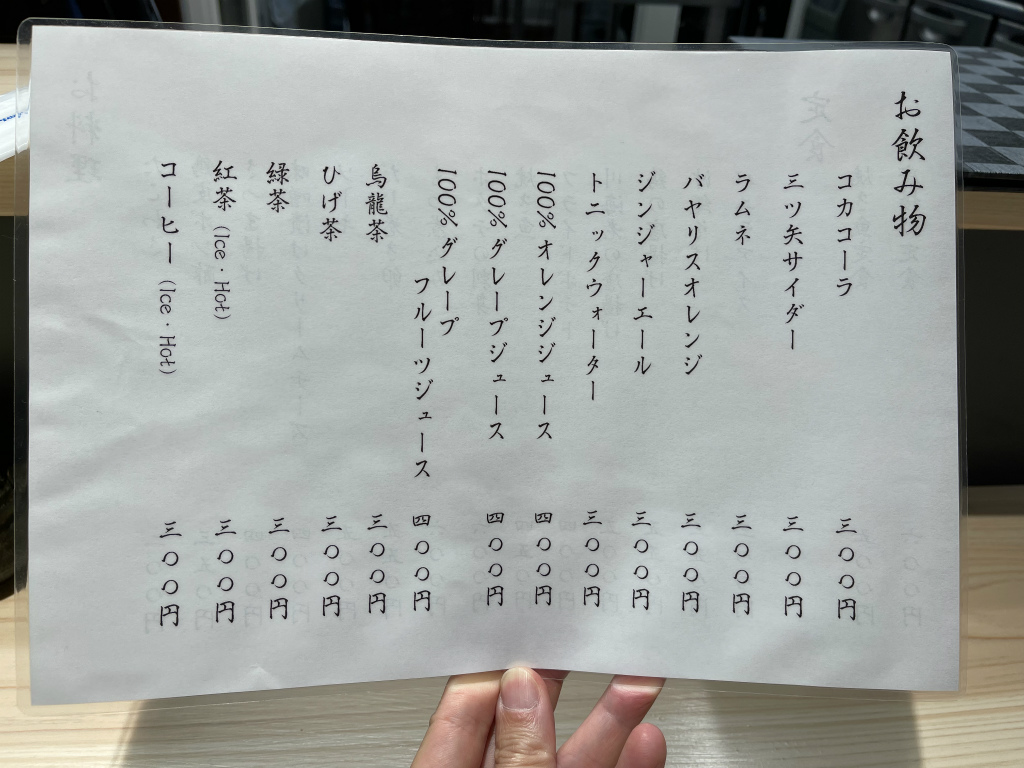 お飲み物
コカコーラ 三〇〇円
三ツ矢サイダー 三〇〇円
ラムネ 三〇〇円
バヤリスオレンジ 三〇〇円
ジンジャーエール 三〇〇円
トニックウォーター 三〇〇円
100% オレンジジュース 四〇〇円
100% グレープジュース 四〇〇円
100% グレープ
フルーツジュース 四〇〇円
烏龍茶 三〇〇円
ひげ茶 三〇〇円
緑茶 三〇〇円
紅茶 (Ice・Hot) 三〇〇円
コーヒー (Ice・Hot) 三〇〇円